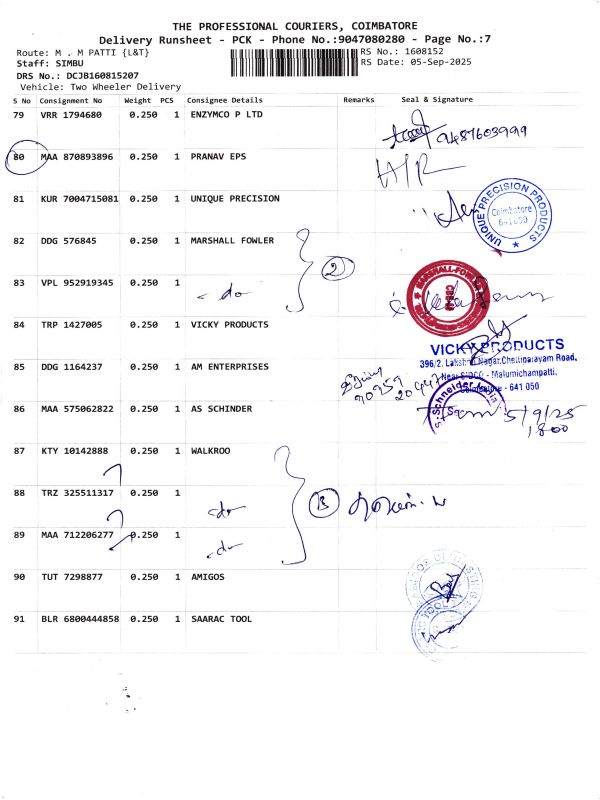 THE PROFESSIONAL COURIERS, COIMBATORE
Delivery Runsheet - PCK - Phone No.:9047080280 - Page No.:7
Route: M . M PATTI {L&T} RS No.: 1608152
Staff: SIMBU RS Date: 05-Sep-2025
DRS No.: DCJB160815207
Vehicle: Two Wheeler Delivery
S No Consignment No Weight PCS Consignee Details Remarks Seal & Signature
79 VRR 1794680 0.250 1 ENZYMCO P LTD
9487603999
80 MAA 870893896 0.250 1 PRANAV EPS
81 KUR 7004715081 0.250 1 UNIQUE PRECISION
UNIQUE PRECISION PRODUCTS
Coimbatore
641 050
82 DDG 576845 0.250 1 MARSHALL FOWLER
2
83 VPL 952919345 0.250 1 - do -
84 TRP 1427005 0.250 1 VICKY PRODUCTS
VICKY PRODUCTS
396/2, Lakshmi Nagar, Chettipalayam Road,
Near SIDCO - Malumichampatti,
Coimbatore - 641 050
85 DDG 1164237 0.250 1 AM ENTERPRISES
86 MAA 575062822 0.250 1 AS SCHINDER
Schneider India
5/9/25
1800
87 KTY 10142888 0.250 1 WALKROO
88 TRZ 325511317 0.250 1 - do -
89 MAA 712206277 0.250 1 - do -
90 TUT 7298877 0.250 1 AMIGOS
91 BLR 6800444858 0.250 1 SAARAC TOOL